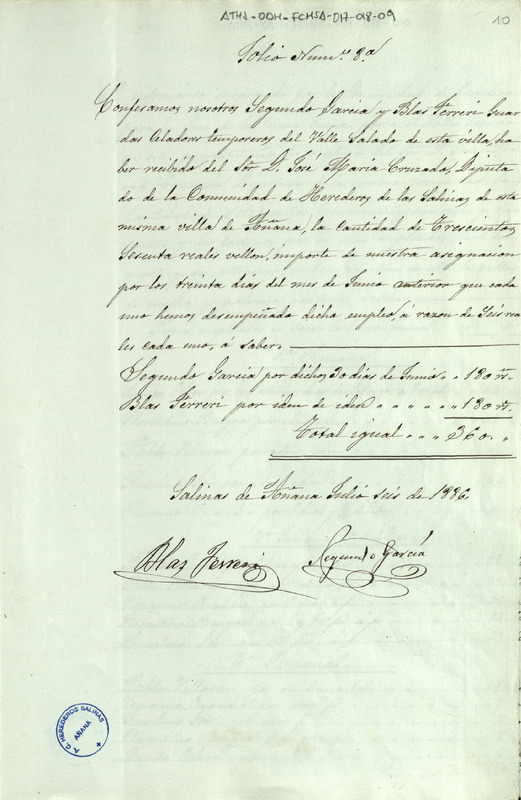 ATHA-DAH-FCHSA-D17-018-09
10
Folio Num.º 8.º
Confesamos nosotros Segundo Garcia y Blas Ferreri Guar
das Celadores temporeros del Valle Salado de esta villa, ha
ber recibido del Sor. D. José Maria Cruzado, Diputa
do de la Comunidad de Herederos de las Salinas de esta
misma villa de Añana, la cantidad de Trescientos
Sesenta reales vellon, importe de nuestra asignacion
por los treinta dias del mes de Junio anterior que cada
uno hemos desempeñado dicho empleo, á razon de Seis rea
les cada uno, á saber.
Segundo Garcia por dichos 30 dias de Junio. " 180 rs.
Blas Ferreri por iden de iden " " " " " 180 rs.
Total igual " " " 360. "
Salinas de Añana Julio seis de 1886
Blas Ferreri Segundo Garcia
A. C. HEREDEROS SALINAS
AÑANA